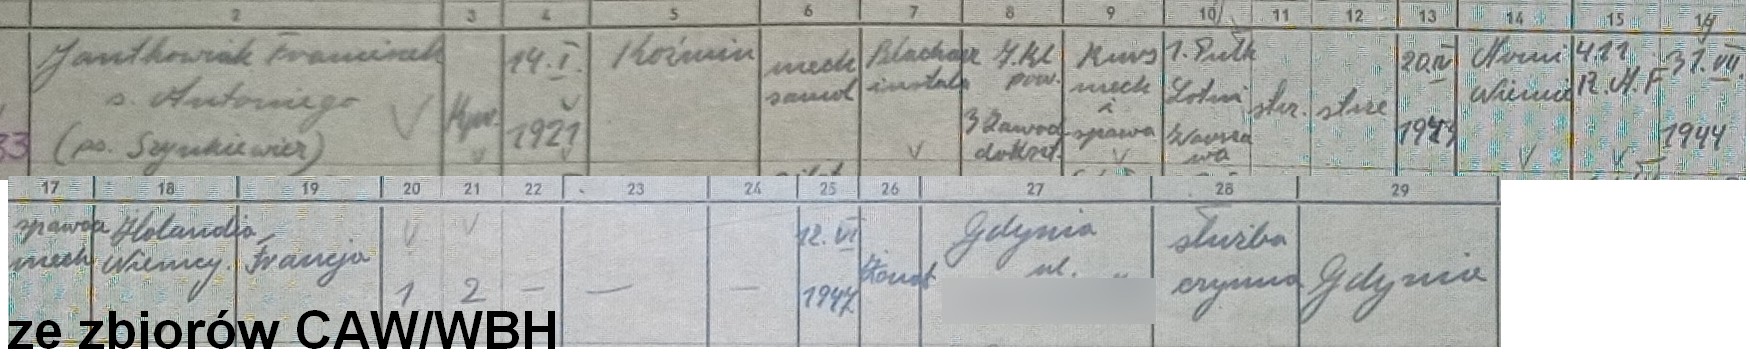 2 3 4 5 6 7 8 9 10 11 12 13 14 15 16
Jantkowiak Franciszek
s. Antoniego
(ps. Szynkiewicz)
33
Kpr.
14.I.
1921
Koźmin
mech
samol
Blacharz
instala
7.Kl
pow.
3 Zawod
dokszt.
Kurs
mech
i
spawa
1. Pułk
Lotni
Warsza
wa
str.
strz
20.IV
1943
Niemie
411
R.A.F
31.VII.
1944
17 18 19 20 21 22 23 24 25 26 27 28 29
spawacz
mech
Holandia
Niemcy.
Francja
1
2
—
—
—
12.VI
1947
Gdynia
ul.
służba
czynna
Gdynia
ze zbiorów CAW/WBH